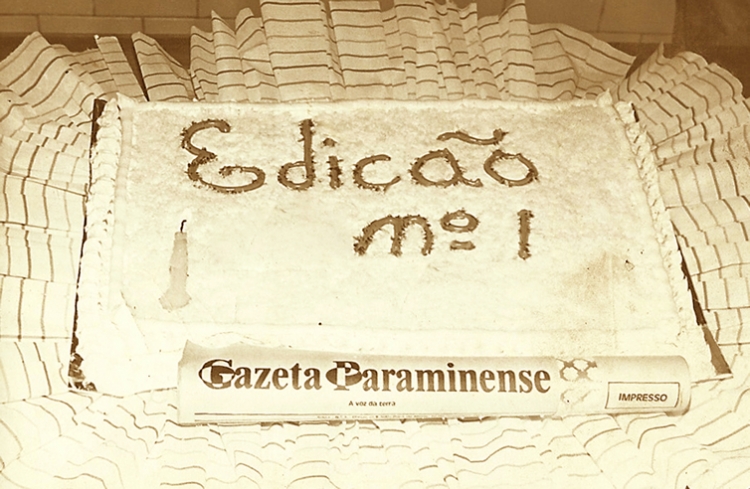 Edicão
nº 1
Gazeta Paraminense
A voz da terra
IMPRESSO